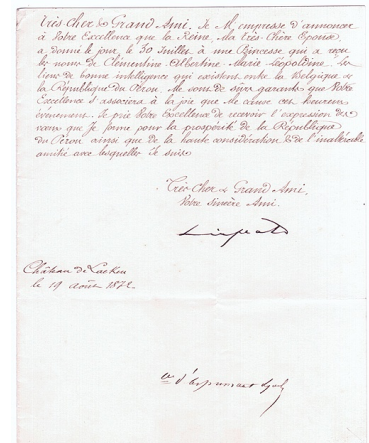 Très Cher & Grand Ami. Je M'empresse d'annoncer
à Votre Excellence que la Reine, Ma très Chère Epouse
a donné le jour, le 30 Juillet à une Princesse qui a reçu
les noms de Clémentine-Albertine-Marie-Léopoldine. Les
liens de bonne intelligence qui existent entre la Belgique &
la République du Pérou. Me sont de sûrs garants que Votre
Excellence s'associera à la joie que Me cause cet heureux
évènement. Je prie Votre Excellence de recevoir l'expression des
vœux que Je forme pour la prospérité de la République
du Pérou ainsi que de la haute considération & de l'inaltérable
amitié avec lesquelles Je suis
Très Cher & Grand Ami.
Votre Sincère Ami.
Château de Laeken
le 19 août 1872
cte d'Aspremont Lynden